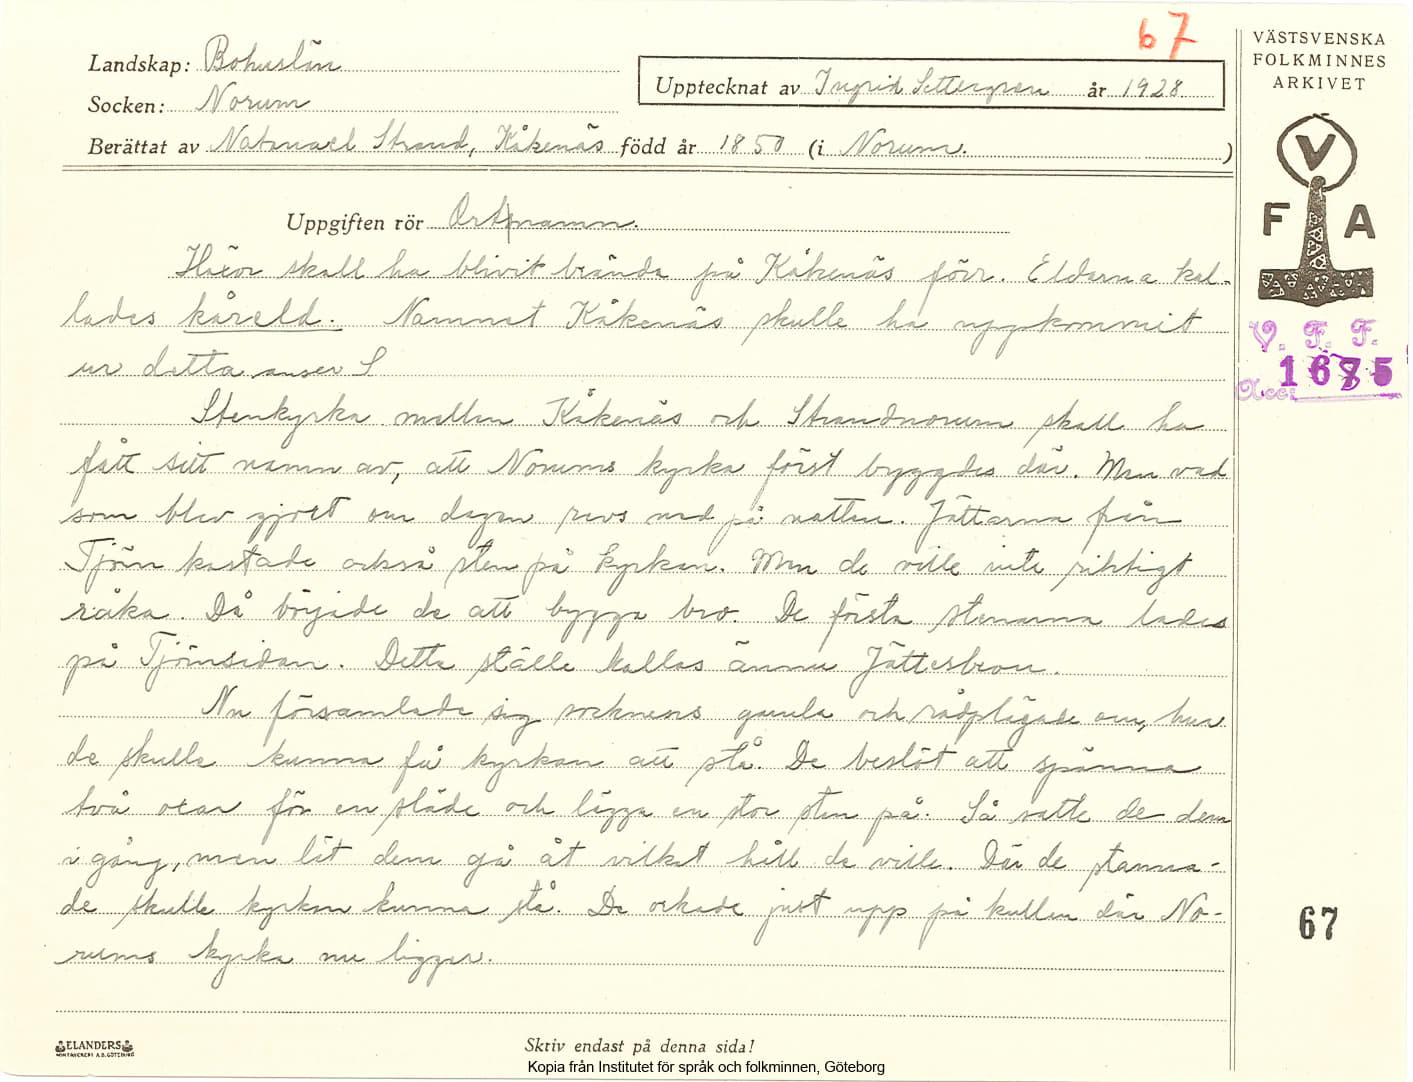 67
Landskap: Bohuslän
Socken: Norum
Upptecknat av Ingrid Settergren år 1928
Berättat av Natanael Strand, Kåkenäs född år 1850 (i Norum.)
Uppgiften rör Ortnamn.
Häxor skall ha blivit brända på Kåkenäs förr. Eldarna kal-
lades kåreld. Namnet Kåkenäs skulle ha uppkommit
ur detta anser S
Stenkyrka mellan Kåkenäs och Strandnorum skall ha
fått sitt namn av, att Norums kyrka först byggdes där. Men vad
som blev gjort om dagen revs ned på natten. Jättarna från
Tjörn kastade också sten på kyrkan. Men de ville inte riktigt
räka. Då började de att bygga bro. De första stenarna lades
på Tjörnsidan. Detta ställe kallas ännu Jättesbron.
Nu församlade sig socknens gamla och rådplägade om, hur
de skulle kunna få kyrkan att stå. De beslöt att spänna
två oxar för en släde och lägga en stor sten på. Så satte de dem
i gång, men lät dem gå åt vilket håll de ville. Där de stanna-
de skulle kyrkan kunna stå. De orkade just upp på kullen där No-
rums kyrka nu ligger.
VÄSTSVENSKA
FOLKMINNES
ARKIVET
V
F A
V. F. F.
1675
Acc:
67
ELANDERS
Skriv endast på denna sida!
Kopia från Institutet för språk och folkminnen, Göteborg